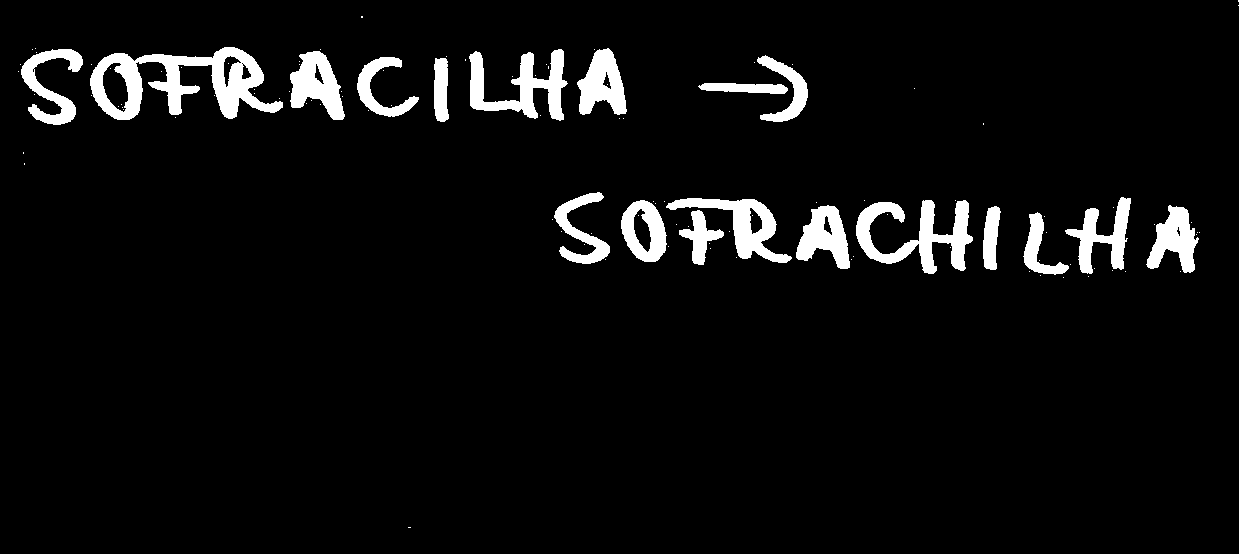 SOFRACILHA →
SOFRACHILHA